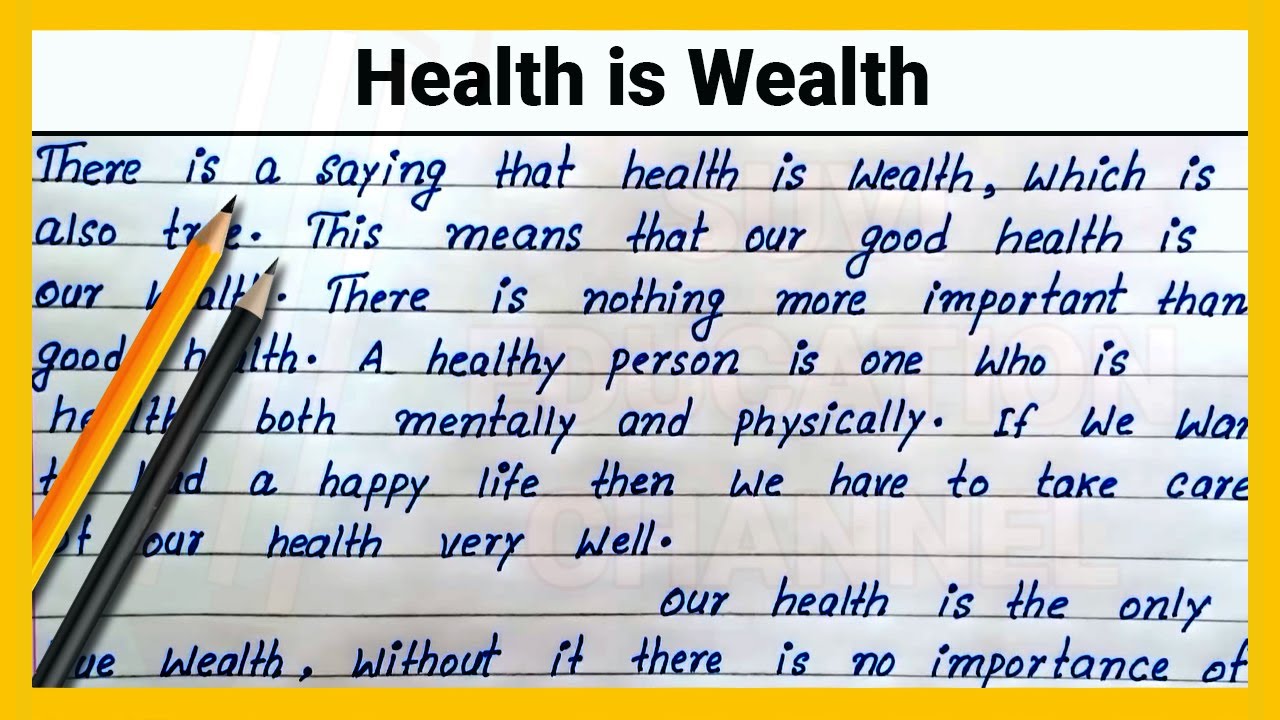 Health is Wealth
There is a saying that health is wealth, which is
also true. This means that our good health is
our wealth. There is nothing more important than
good health. A healthy person is one who is
healthy both mentally and physically. If we
to lead a happy life then we have to take care
of our health very well.
our health is the only
true wealth, without it there is no importance of
SUVI
EDUCATION
CHANNEL